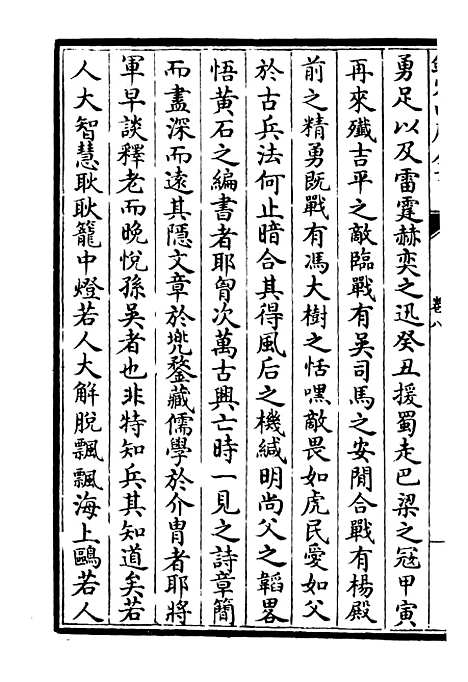 卷八
勇足以及雷霆赫奕之迅癸丑援蜀走巴梁之冦甲寅
再來殲吉平之敵臨戰有吳司馬之安閒合戰有楊殿
前之精勇既戰有馮大樹之恬嘿敵畏如虎民愛如父
於古兵法何止暗合其得風后之機緘明尚父之韜畧
悟黃石之編書者耶胷次萬古興亡時一見之詩章簡
而盡深而遠其隱文章於兠鍪藏儒學於介胄者耶將
軍早談釋老而晚悅孫吳者也非特知兵其知道矣若
人大智慧耿耿籠中燈若人大解脫飄飄海上鷗若人